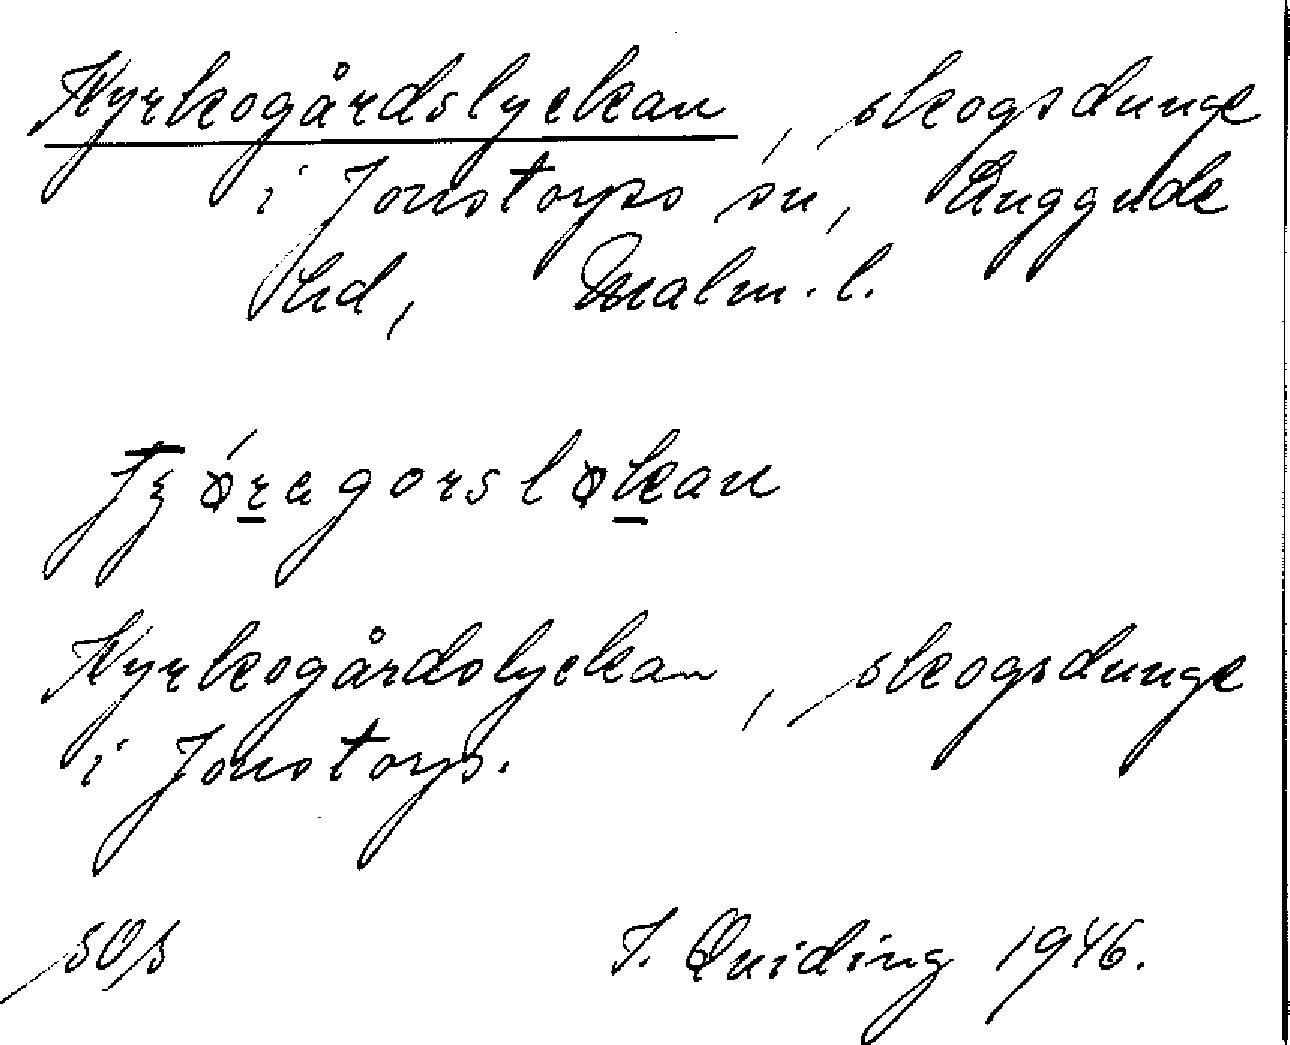 Kyrkogårdslyckan, skogsdunge
i Jonstorps sn, Luggude
hd, Malm. l.
Kyrkogårdslyckan, skogsdunge
i Jonstorp.
J. Quiding 1946.